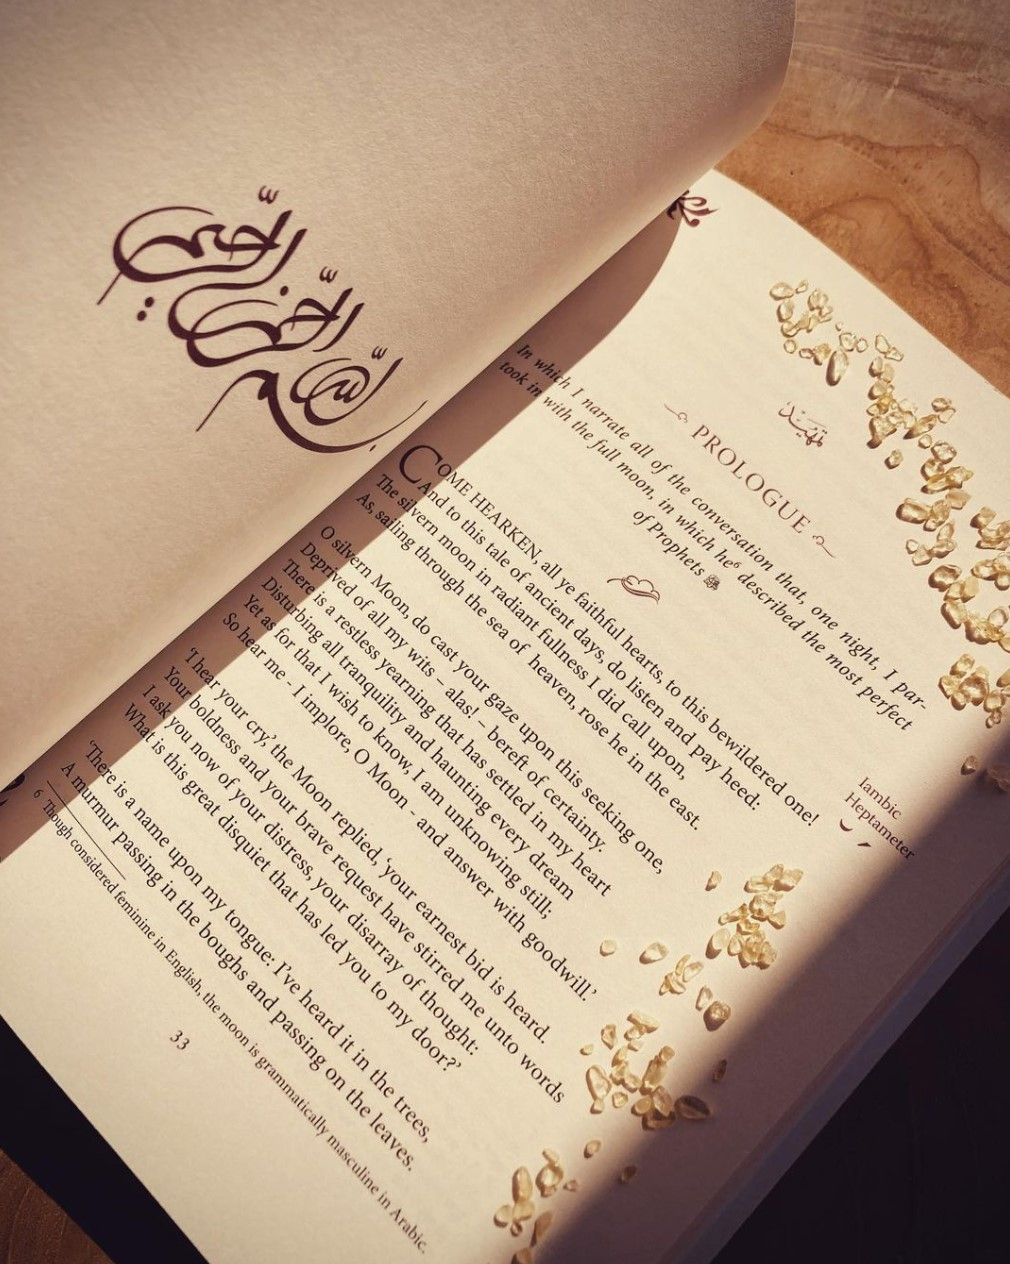 بسم الله
الرحمن
الرحيم
تَمْهِيْد
PROLOGUE
In which I narrate all of the conversation that, one night, I par-
took in with the full moon, in which he⁶ described the most perfect
of Prophets ﷺ
COME HEARKEN, all ye faithful hearts, to this bewildered one!
And to this tale of ancient days, do listen and pay heed:
The silvern moon in radiant fullness I did call upon,
As, sailing through the sea of heaven, rose he in the east.
Iambic
Heptameter
O silvern Moon, do cast your gaze upon this seeking one,
Deprived of all my wits – alas! – bereft of certainty.
There is a restless yearning that has settled in my heart
Disturbing all tranquility and haunting every dream
Yet as for that I wish to know, I am unknowing still;
So hear me - I implore, O Moon - and answer with goodwill.’
‘I hear your cry’, the Moon replied, ‘your earnest bid is heard.
Your boldness and your brave request have stirred me unto words
I ask you now of your distress, your disarray of thought:
What is this great disquiet that has led you to my door?’
‘There is a name upon my tongue: I’ve heard it in the trees,
A murmur passing in the boughs and passing on the leaves.
6 Though considered feminine in English, the moon is grammatically masculine in Arabic.
33